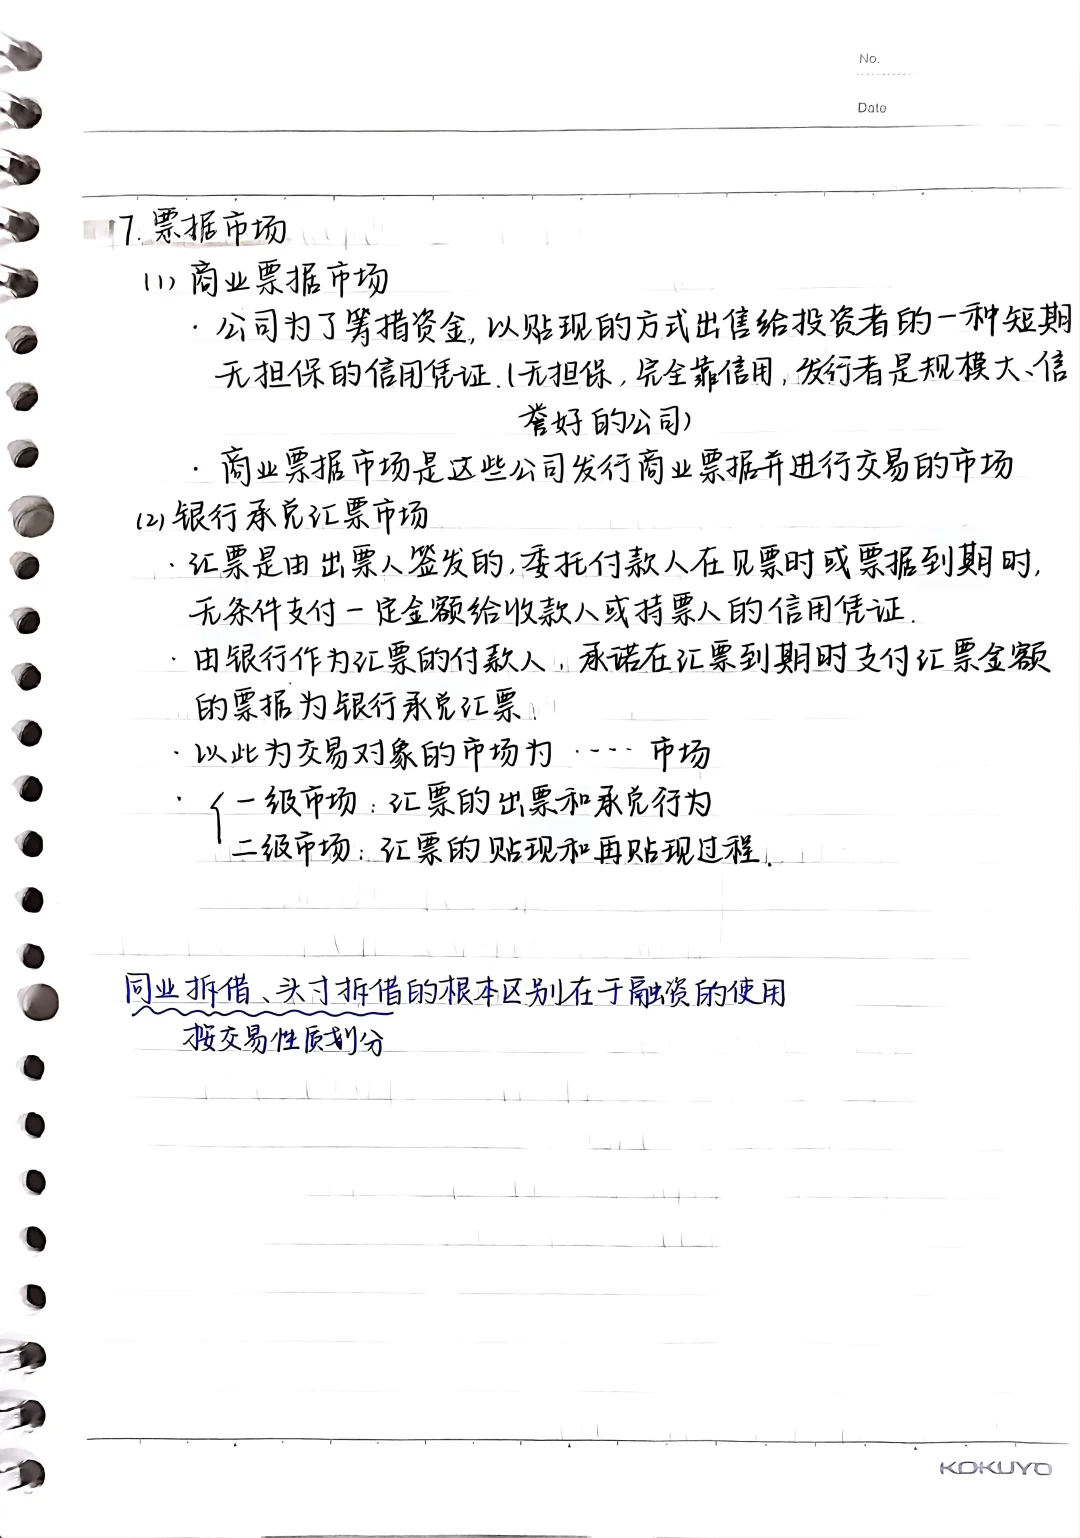 No.
Date
7. 票据市场
(1) 商业票据市场
· 公司为了筹措资金, 以贴现的方式出售给投资者的一种短期
无担保的信用凭证.(无担保, 完全靠信用, 发行者是规模大、信
誉好的公司)
· 商业票据市场是这些公司发行商业票据并进行交易的市场
(2) 银行承兑汇票市场
· 汇票是由出票人签发的, 委托付款人在见票时或票据到期时,
无条件支付一定金额给收款人或持票人的信用凭证.
· 由银行作为汇票的付款人, 承诺在汇票到期时支付汇票金额
的票据为银行承兑汇票.
· 以此为交易对象的市场为 ···· 市场
· { 一级市场: 汇票的出票和承兑行为
二级市场: 汇票的贴现和再贴现过程.
同业拆借、头寸拆借的根本区别在于融资的使用
按交易性质划分
KOKUYO